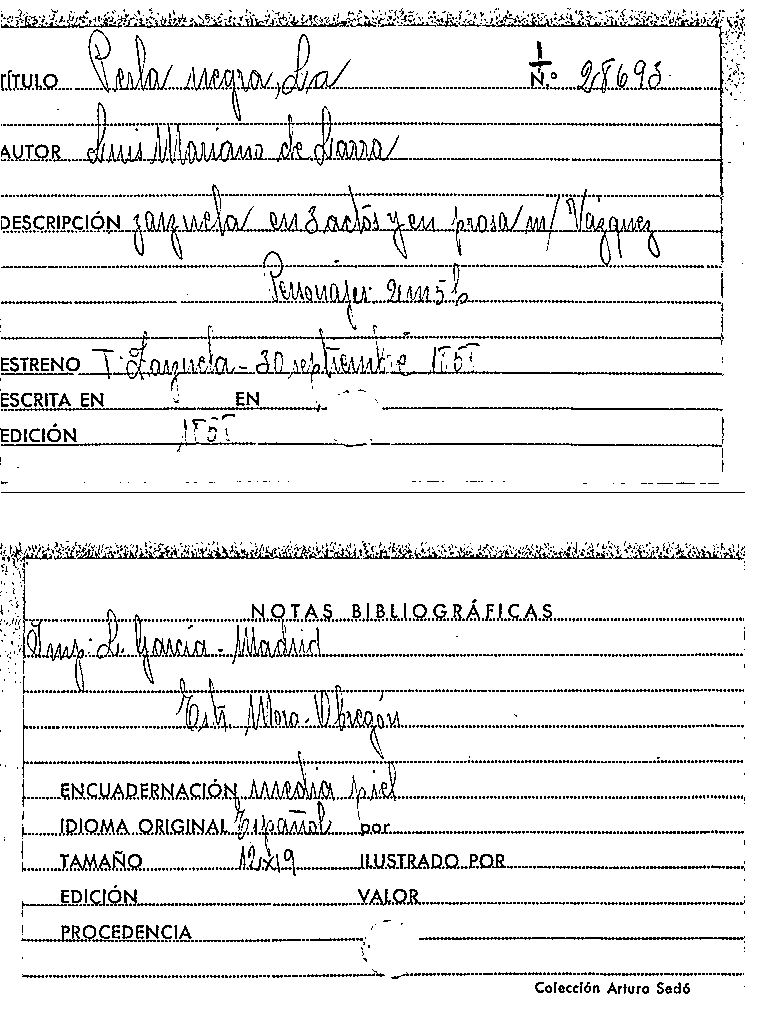 TÍTULO Perla negra, La 1 N.º 28693
AUTOR Luis Mariano de Larra
DESCRIPCIÓN zarzuela en 3 actos y en prosa m/ Vázquez
Personajes: 2 m 5 h
ESTRENO T. Zarzuela - 30 septiembre 1858
ESCRITA EN EN
EDICIÓN 1858
NOTAS BIBLIOGRÁFICAS
Imp. L. García - Madrid
Estr. Mora - Obregón
ENCUADERNACIÓN media piel
IDIOMA ORIGINAL Español por
TAMAÑO 12x19 ILUSTRADO POR
EDICIÓN VALOR
PROCEDENCIA
Colección Arturo Sedó